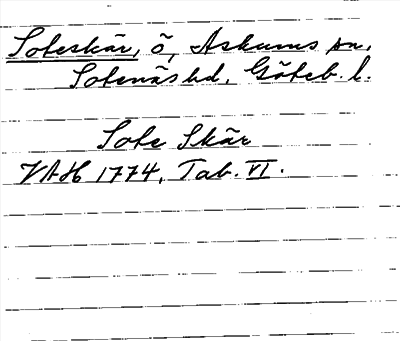 Soteskär, ö, Askums sn.
Sotenäs hd, Göteb. l.
Sote Skär
VAH 1774, Tab. VI.